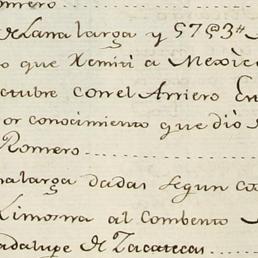 Romero
de Lana larga y 57@3th
o que Remiti a Mexico
ctubre con el Arriero En
or conocimiento que dio
Romero
na larga dadas segun co
Limosna al Combento
adalupe de Zacatecas